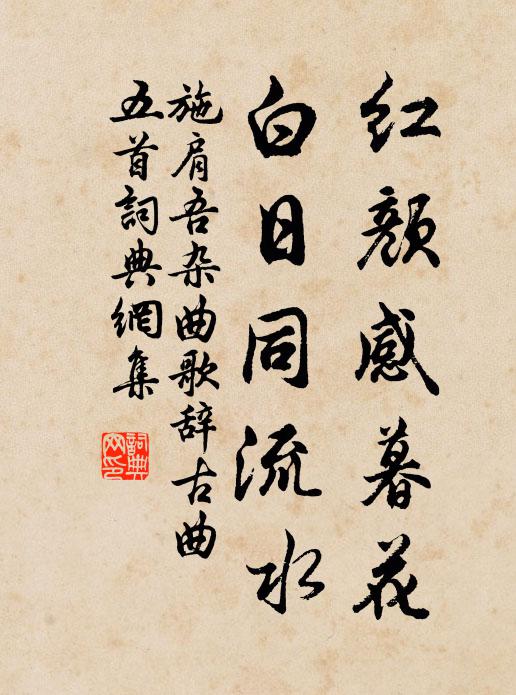 红颜感暮花
白日同流水
施肩吾杂曲歌辞古曲
五首詞典網集
詞典網印